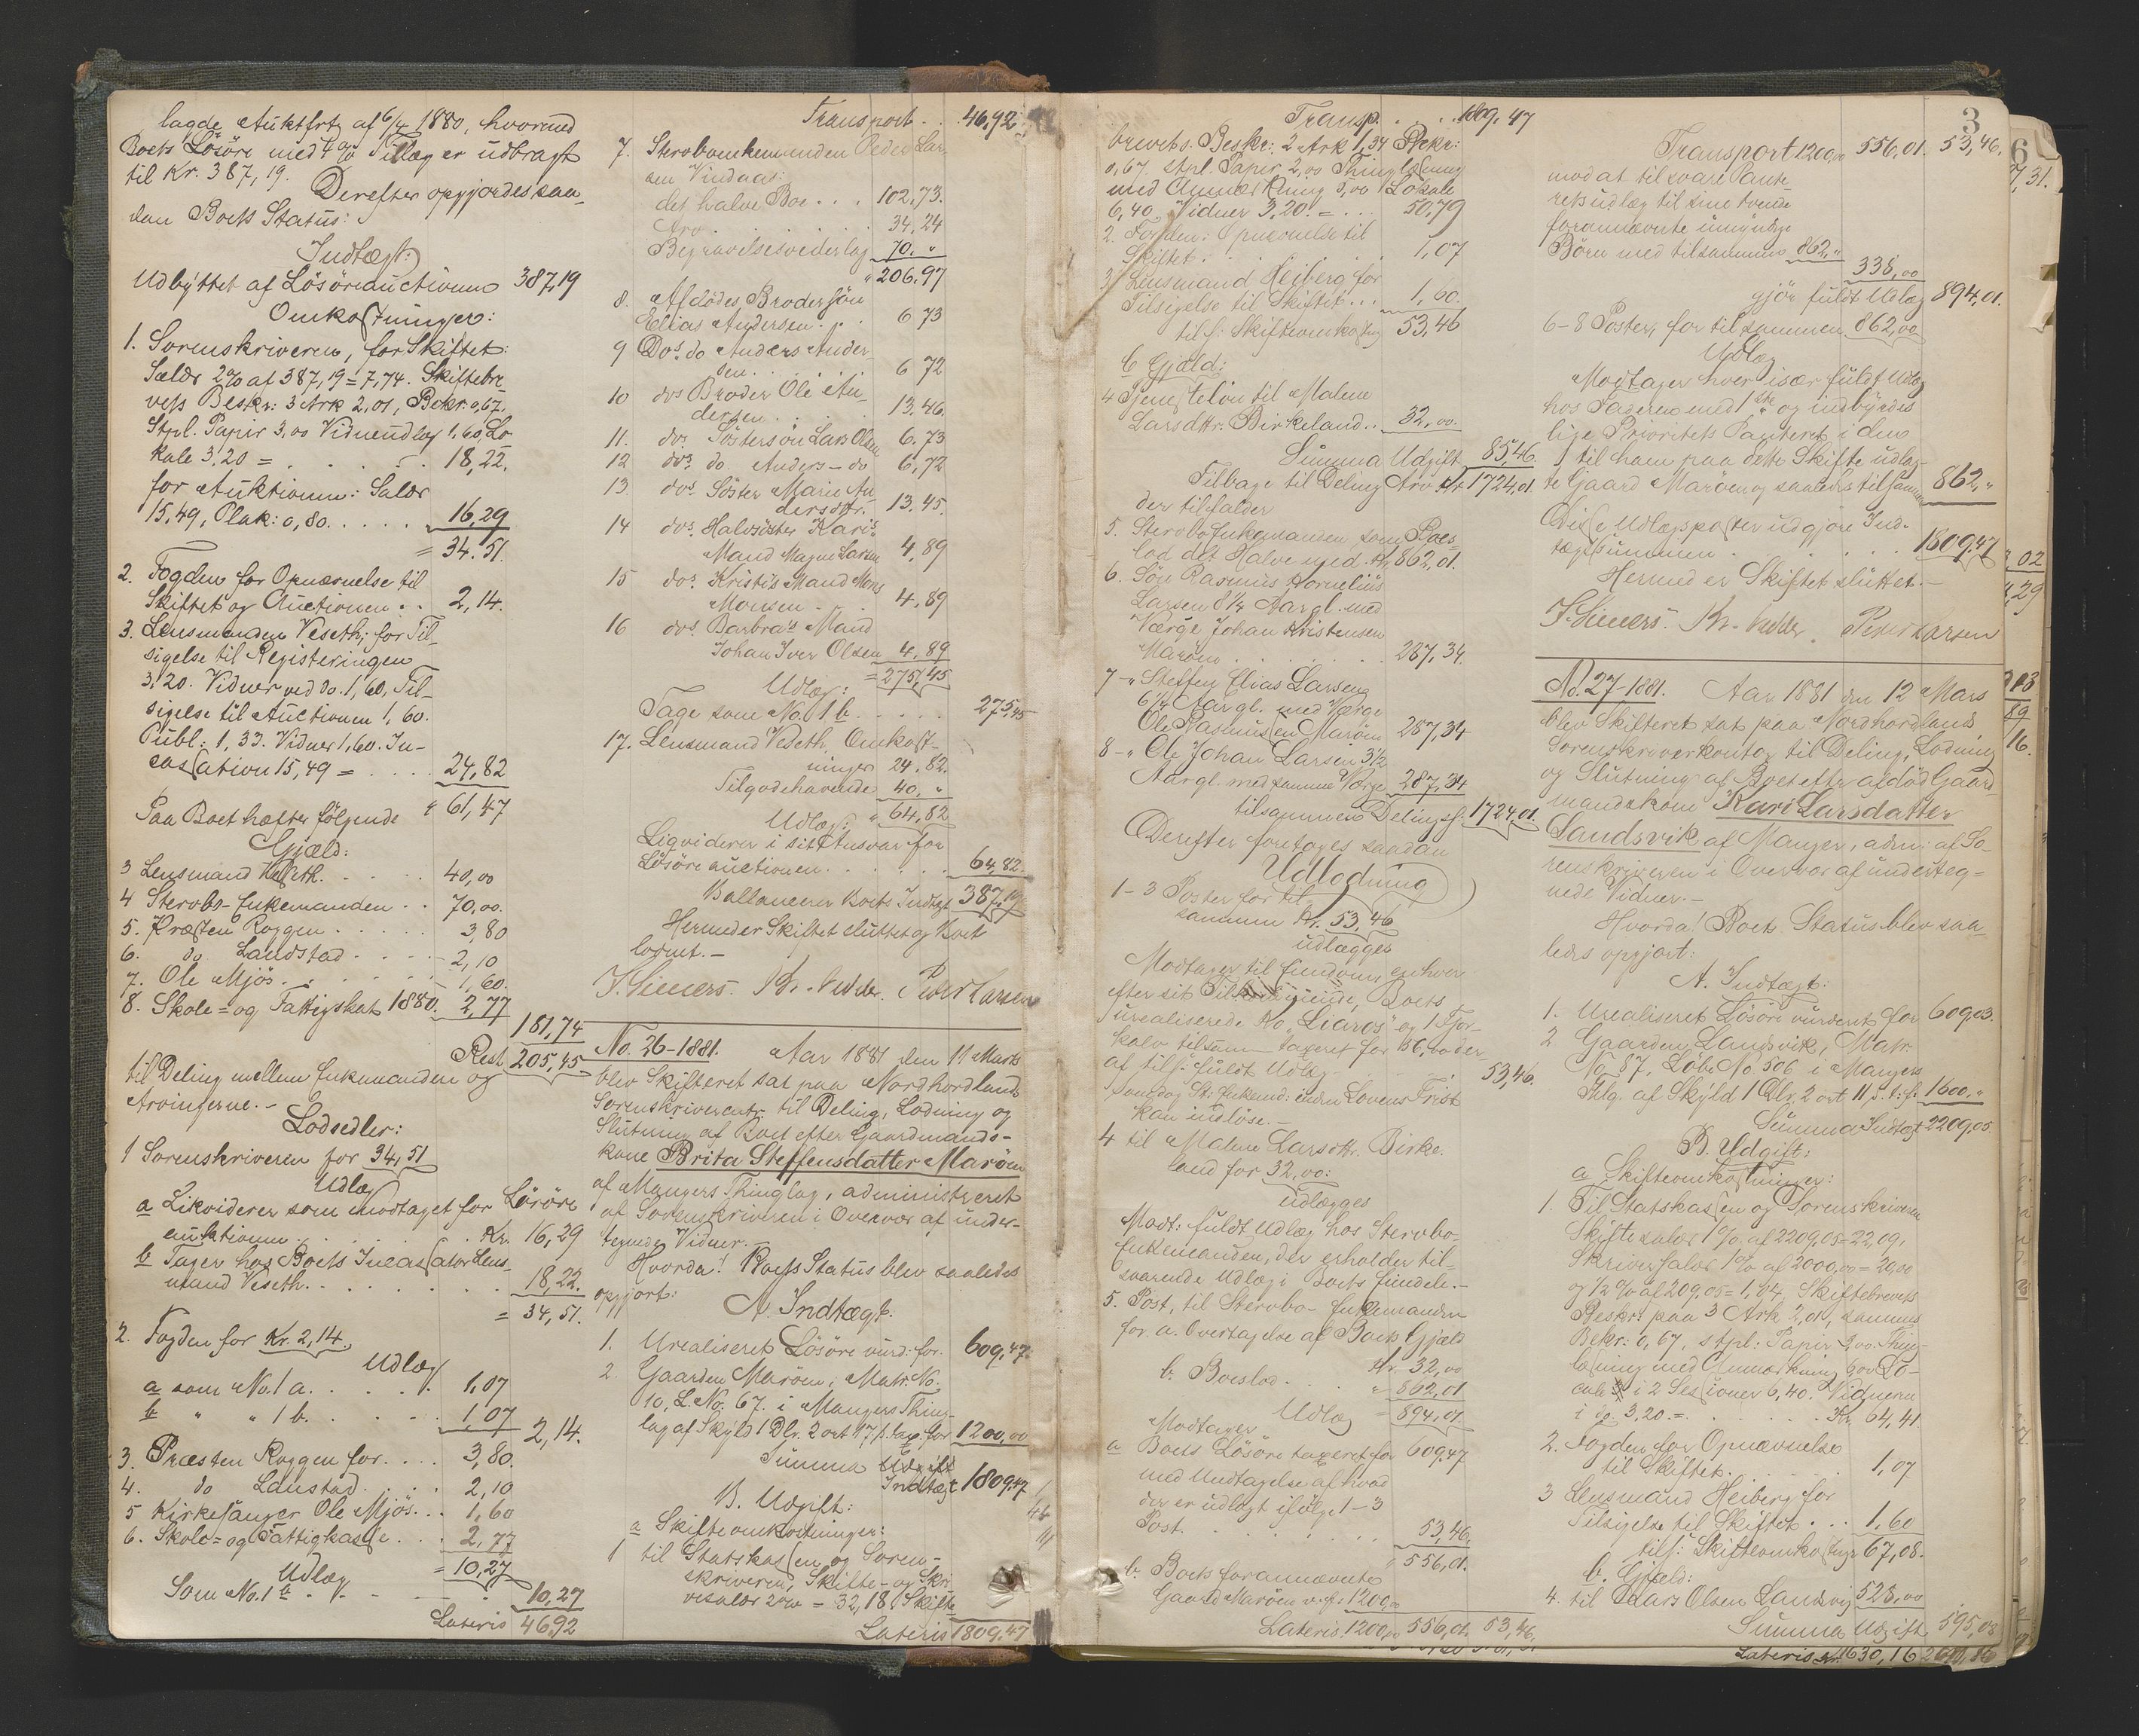 lagde Auktfrtg af 6/4 1880, hvormed
Boets Lösöre med 4% Tillæg er udbragt
til Kr. 387,19. Derefter opgjordes saa-
dan Boets Status:
Indtægt:
Udbyttet af Lösöreauctionen 387,19
Omkostninger:
1. Sorenskriveren, for Skiftet:
Salær 2% af 387,19 = 7,74. Skiftebre-
vets Beskr: 3 Ark 2,01, Bekr. 0,67.
Stpl. Papir 3,00 Vidneudlæg 1,60, Lo-
kale 3,20 = . . . . 18,22.
for Auktionen: Salær
15,49, Plak: 0,80. . . . . 16,29
= 34.51.
2. Fogden for Opnævnelse til
Skiftet og Auctionen . . 2,14.
3. Lensmanden Veseth, for Til-
sigelse til Registeringen
3,20. Vidner ved do. 1,60, Til-
sigelse til Auctionen 1,60.
Publ: 1,33. Vidner 1,60. In-
cassation 15,49 = . . . . 24,82
" 61,47
Paa Boet hæfter fölgende
Gjæld:
3 Lensmand Veseth. . . . . 40,00
4 Stervbo-Enkemanden . . 70,00.
5. Præsten Roggen . . . . . 3,80
6. do. Landstad . . . . . 2,10
7. Ole Mjös . . . . . . 1,60.
8. Skole- og Fattigskat 1880. 2,77
181,74
Rest 205,45
til Deling mellem Enkemanden og
Arvingerne. -
Lodsedler:
1 Sorenskriveren for 34,51
Udlæg
a Likviderer som modtaget for Lösöre
auktionen . . . . . . Kr. 16,29
b Tager hos Boets Incassator Lens-
mand Veseth. . . . . . . 18,22.
= 34,51.
2. Fogden for Kr. 2,14.
Udlæg
a som No. 1 a. . . . . . 1,07
b " " 1 b. . . . . 1,07
2,14.
3. Præsten Roggen for. . . . 3,80.
4. do Lanstad. . . . . 2,10
5 Kirkesanger Ole Mjös . . . 1,60
6. Skole- og Fattigkasse . . . 2,77
= 10,27
Udlæg
Som No. 1 b . . . . . . 10,27
Lateris 46,92
Transport . . 46,92
7. Stervboenkemanden Peder Lar-
sen Vindnæs:
det halve Boe . . . 102,73.
Arv . . . . . . 34,24
Begravelsesvederlag 70. "
" 206.97
8. Afdödes Brodersön
Elias Andersen . . . 6 73
9 Do. do Anders Ander-
sen . . . . . 6 72
10 dos Broder Ole An-
dersen . . . . 13,46.
11. dos. Söstersön Lars Olsen 6.73
12 dos. do. Anders - do 6,72
13 dos. Söster Marie An-
dersdtr. 13,45.
14 dos. Halvsöster Kari's
Mand Magne Larsen 4,89
15 dos. Kristi's Mand Mons
Monsen . . . 4,89
16 dos. Barbra's Mand
Johan Iver Olsen 4,89
= 275,45
Udlæg:
Tage som No. 1 b. . . . . 275,45
17. Lensmand Veseth, Omkost-
ninger 24,82.
Tilgodehavende 40, "
" 64,82
Udlæg:
Liqviderer i sit Ansvar for
Lösöreauctionen . . . . . . 64,82.
Ballancerer Boets Indtægt 387,19
Hermed er Skiftet sluttet og Boet
loqnet. -
Peder Larsen
No. 26-1881. Aar 1881 den 11 Marts
blev Skifteret sat paa Nordhordland
Sorenskrivercntr. til Deling, Lodning og
Slutning af Boet efter Gaardmands-
kone Brita Steffensdatter Maröen
af Mangers Thinglag, administreret
af Sorenskriveren i Overvær af under-
tegnede Vidner. -
Hvorda! Boets Status blev saaledes
opgjort:
A. Indtægt.
1. Urealiseret Lösöre vurd: for. 609,47.
2. Gaarden Maröen, Matr. No.
10, L. No. 67. i Mangers Thing-
lag af Skyld 1 Dlr. 2 ort 17 s. tax. for 1200,00
Summa Udgift
Indtægt 1809,47
B. Udgift:
a Skifteomkostninger:
1 til Statskassen og Soren-
skriveren, Skifte- og Skri-
versalær 2% = 32,18. Skifte-
Lateris 1809,47
Transp. . . . . 1809.47
brevets Beskr: 2 Ark 1,34 Bekr:
0,67 Stpl. Papir 2,00 Thinglæsning
med Anmærkning 5,00 Lokale
6,40. Vidner 3,20. = . . . 50,79
2. Fogden: Opnævnelse til
Skiftet . . . . . . 1,07
3. Lensmand Heiberg for
Tilsigelse til Skiftet . . . 1,60.
tils: Skifteomkostng 53,46
b Gjæld:
4 Tjenesteløn til Malene
Larsdttr. Birkeland . . 32,00.
Summa Udgift 85,46.
Tilbage til Deling Arv Kr 1724,01.
der tilfalder
5. Stervboenkemanden som Boes-
lod det Halve med Kr 862,01.
6. Sön Rasmus Kornelius
Larsen 8¼ Aar gl. med
Værge Johan Kristensen
Maröen . . . . . . 287,34.
7 - " Steffen Elias Larsen
6¼ Aar gl. med Værge
Ole Rasmussen Maröen 287,34
8 - " Ole Johan Larsen 3½
Aar gl. med samme Værge 287,34
tilsammen Delingsf. 1724,01.
Derefter foretoges saadan
Udlodning
1-3 Poster for til-
sammen Kr. 53,46
udlægges
Modtager til Eiendom, enhver
efter sit Tilkommende, Boets
urealiserede Ko "Liaros" og 1 Tjor-
kalv tilsam taxeret for 56,00 der-
af tils: fuldt Udlæg . . . . . 53,46.
Samdog St: Enkemd: inden Lovens Frist
kan indlöse. -
4 til Malene Larsdttr. Birke-
land for 32,00:
udlægges
Modt: fuldt Udlæg hos Stervbo-
Enkemanden, der erholder til-
svarende Udlæg i Boets Eiendele. -
5. Post, til Stervbo-Enkemanden
for a. Overtagelse af Boets Gjæld
Kr. 32,00
b. Boeslod . . . . " 862,01
= 894,01
Udlæg
Modtager
a Boets Lösöre taxeret for 609,47
med Undtagelse af hvad
der er udlagt ifölge 1-3
Post. . . . . . . . . 53,46.
" 556,01.
b. Boets forannævnte
Gaard Maröen v. f. 1200,00
Lateris 1200,00 556,01. 53,46.
3
Transport 1200,00 556,01. 53,46.
mod at tilsvare Fante-
retsudlæg til sine tvende
forannævnte umyndige
Børn med tilsammen 862, "
338,00
gjör fuldt Udlæg 894,01.
6-8 Poster, for tilsammen 862,00
Udlæg
Modtager hver især fuldt Udlæg
hos Faderen med 1ste og indbyrdes
lige Prioritets Panteret i den
til ham paa dette Skifte udlag-
te Gaard Maröen og saaledes tilsammen 862, "
Disse Udlægsposter udgjøre Ind-
tægtssummen . . . . . . . 1809,47
Hermed er Skiftet sluttet. -
Peder Larsen
No. 27-1881. Aar 1881 den 12 Mars
blev Skifteret sat paa Nordhordlands
Sorenskriverkontor til Deling, Lodning
og Slutning af Boet efter afdöd Gaard-
mandskone Kari Larsdatter
Landsvik af Manger, adm: af So-
renskriveren i Overvær af underteg-
nede Vidner. -
Hvorda! Boets Status blev saa-
ledes opgjort:
A. Indtægt:
1. Urealiseret Lösöre vurderet for 609,03.
2 Gaarden Landsvik, Matr.
No 87, Löbe No 306 i Mangers
Thlg. af Skyld 1 Dlr. 2 ort 11 s. t: f. 1600. "
Summa Indtægt 2209,05
B. Udgift:
a Skifteomkostninger:
1. Til Statskassen og Sorenskriveren
Skiftesalær 1% af 2209,05 = 22,09,
Skriversalær 1% af 2000,00 = 20,00
og ½% af 209,05 = 1,04, Skiftebrevets
Beskr: paa 3 Ark 2,01, sammes
Bekr: 0,67, stpl: Papir 3,00. Thing-
læsning med Anmærkning 6,00 Lo-
cale i 2 Sessioner 6,40. Vidnerne
i do 3,20. = . . . . . . Kr. 64,41
2. Fogden for Opnævnelse
til Skiftet . . . . . . 1,07
3 Lensmand Heiberg for
Tilsigelse til Skiftet . . . 1,60
tils: Skifteomkostngr 67,08.
b. Gjæld:
4. til Lars Olsen Landsvig 528,00
Summa Udgift 595,08
Lateris Kr. 1630,16